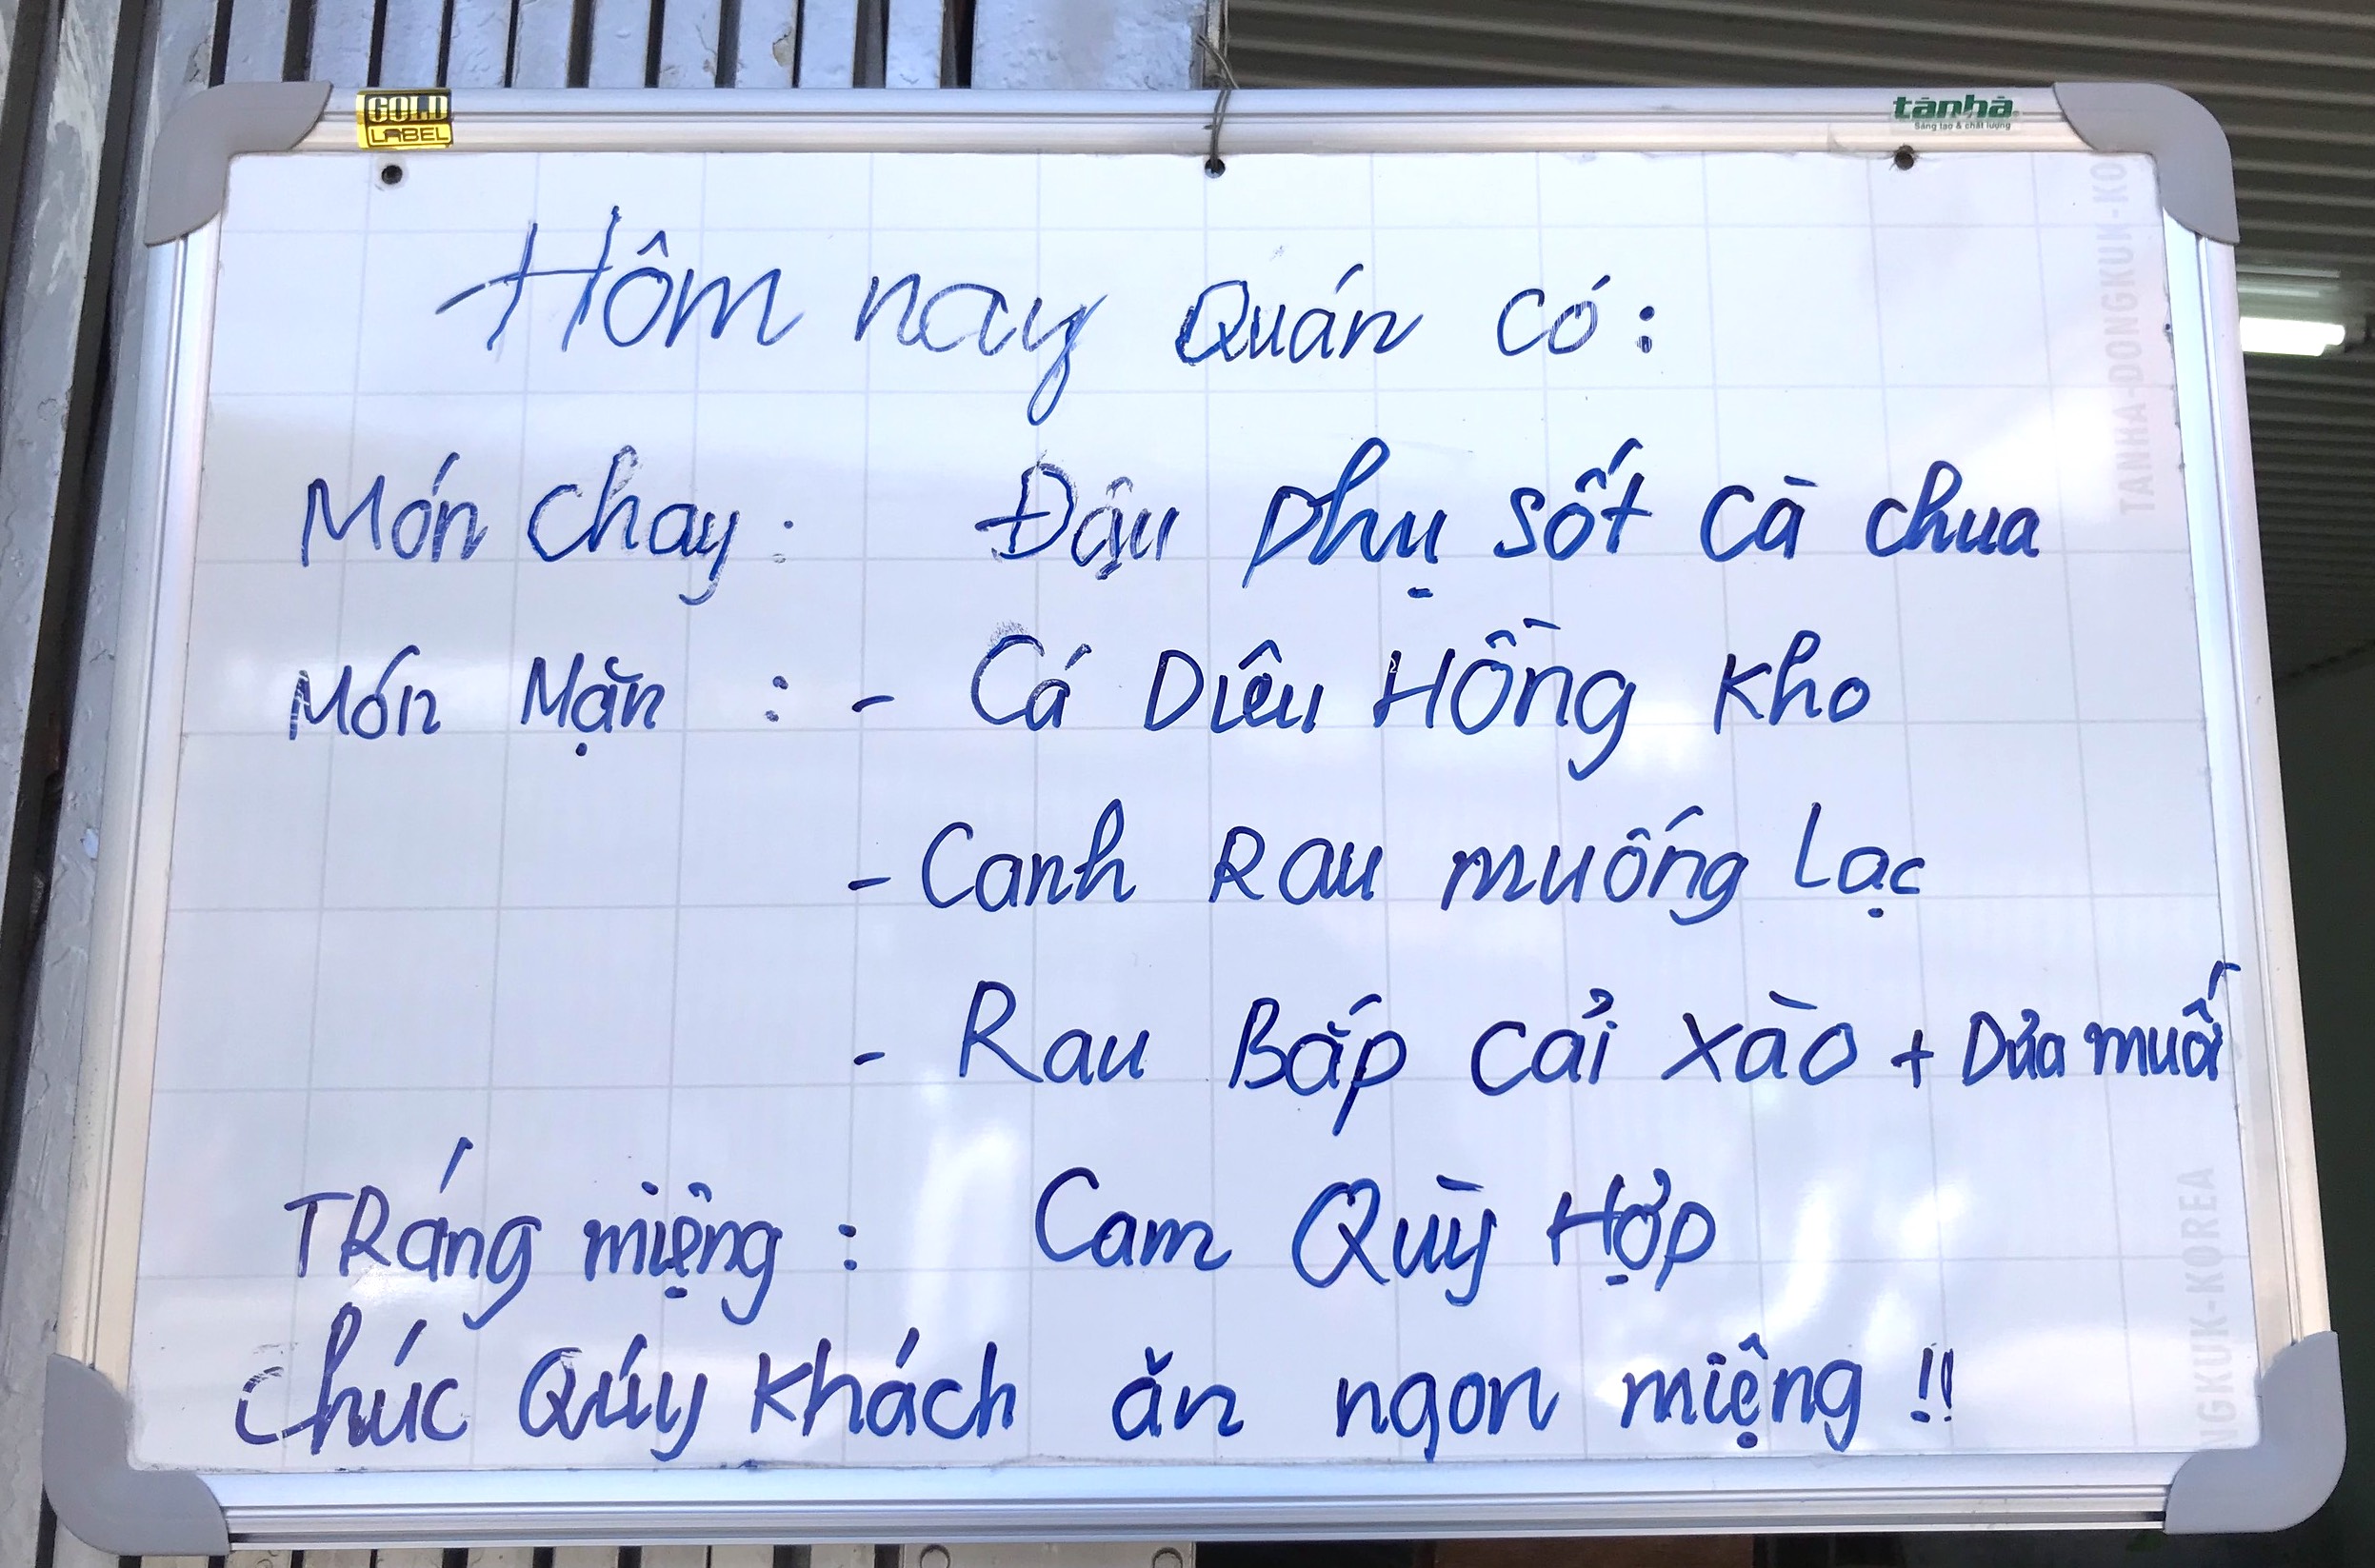 GOLD
LABEL
tânhà
Sáng tạo & chất lượng
Hôm nay Quán có:
Món chay: Đậu phụ sốt cà chua
Món Mặn : - Cá Diêu Hồng Kho
- Canh Rau muống Lạc
- Rau Bắp Cải Xào + Dưa muối
TRáng miệng : Cam Quỳ Hợp
chúc Qúy Khách ăn ngon miệng !!
TANHA-DONGKUK-KO
NGKUK-KOREA